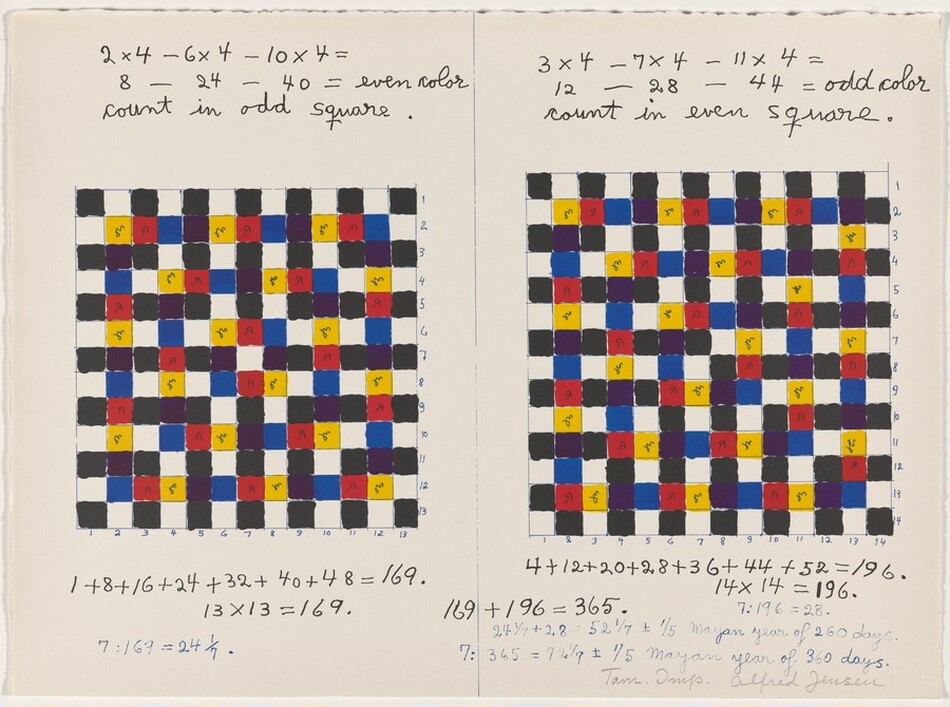 2×4 – 6×4 – 10×4 =
8 — 24 – 40 = even color
count in odd square.
3×4 – 7×4 – 11×4 =
12 — 28 – 44 = odd color
count in even square.
1
2
3
4
5
6
7
8
9
10
11
12
13
1 2 3 4 5 6 7 8 9 10 11 12 13
1
2
3
4
5
6
7
8
9
10
11
12
13
14
1 2 3 4 5 6 7 8 9 10 11 12 13 14
1+8+16+24+32+40+48=169.
13×13=169.
4+12+20+28+36+44+52=196.
14×14=196.
169+196=365.
7:196=28.
7:169=24 1/7.
24 1/7+28=52 1/7 ± 1/5 Mayan year of 260 days.
7: 365 = 72 1/7 ± 1/5 Mayan year of 360 days.
Tam. Imp. Alfred Jensen